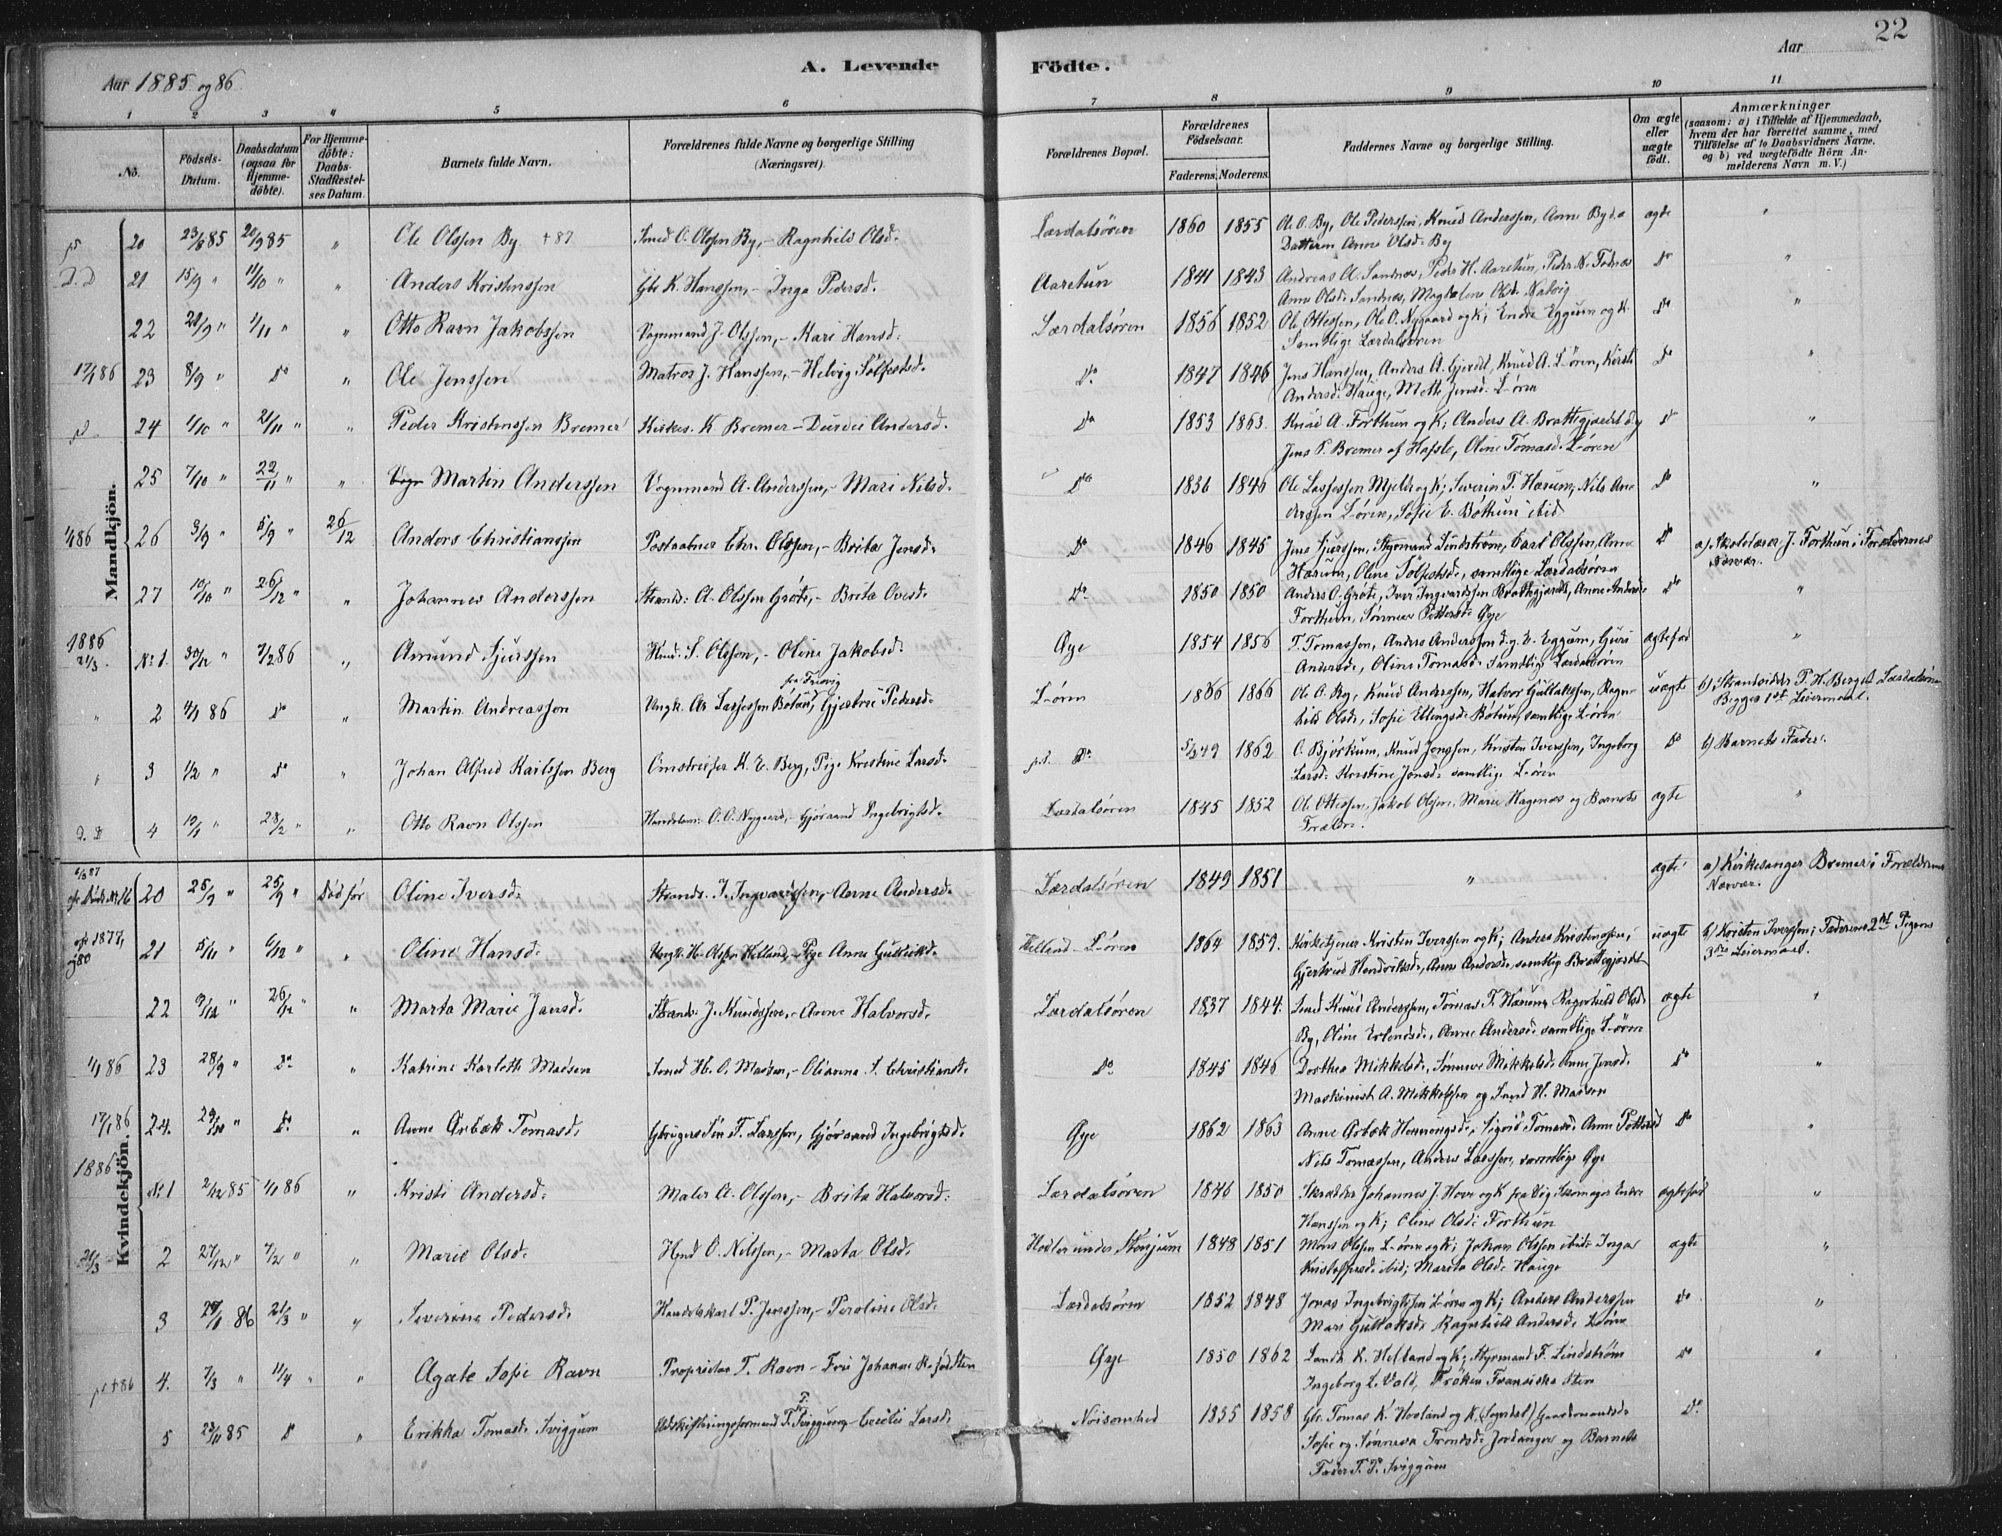 22
Aar 1885 og 86
A. Levende Födte.
Aar
1 2 3 4 5 6 7 8 9 10 11
No.
Födsels-Datum.
Daabsdatum (ogsaa for Hjemme-döbte).
For Hjemme-döbte: Daabs-Stadfæstel-ses Datum.
Barnets fulde Navn.
Forældrenes fulde Navne og borgerlige Stilling (Næringsvei).
Forældrenes Bopæl.
Forældrenes Födselsaar.
Faderens. Moderens.
Faddernes Navne og borgerlige Stilling.
Om ægte eller uægte födt.
Anmærkninger (saasom: a) i Tilfælde af Hjemmedaab, hvem der har forrettet samme, med Tilföielse af to Daabsvidners Navne, og b) ved uægtefödte Börn An-melderens Navn m. V.)
Mandkjön.
20 23/8 85 20/9 85 " Ole Olssen By +87 Smed O. Olssen By, - Ragnhild Olsd. Lærdalsören 1860 1855 Ole O. By, Ole Pederssen, Knud Anderssen, Anne By og Datteren Anne Olsd. By ægte "
21 15/9 " 11/10 " " Anders Kristenssen Gbr K. Hanssen, - Inga Pedersd. Aaretun 1841 1843 Andreas A. Sandnes, Peder H. Aaretun, Peder N. Födnes Anne Olsd. Sandnes, Magdalena Olsd. Natvig Do "
22 22/9 " 1/11 " " Otto Ravn Jakobssen Vognmand J. Olssen, - Kari Hansd. Lærdalsören 1856 1852 Ole Ottessen, Ole O. Nygaard og K; Endre Eggum og K. Samtlige Lærdalsören Do "
17/1 86 23 8/9 " Do " Ole Jenssen Matros J. Hanssen, - Helvig Solfestsd. Do 1847 1846 Jens Hanssen, Anders A. Gjerde, Knud A. L-ören, Kirsti Andersd. Hauge, Mette Jensd. L-ören Do "
24 1/10 " 21/11 " " Peder Kristenssen Bremer Kirkes. K. Bremer - Durdei Andersd. Do 1853 1863 Knud A. Forthun og K; Anders A. Brattegjærdet og Jens P. Bremer af Hafslo, Oline Tomasd. L-ören Do "
25 7/10 " 22/11 " " Martin Anderssen Vognmand A. Anderssen, - Mari Nilsd. Do 1836 1846 Ole Lassessen Mjelde og K; Severin T. Hærum, Nils Anderssen L-ören, Sofie E. Böthun ibid Do "
1/1 86 26 3/9 " 5/9 " 26/12 Anders Christianssen Postaabner Chr. Olssen, - Brita Jensd. Do 1846 1845 Jens Sjurssen, Styrmand Lindström, Carl Olssen, Anne Hærum, Oline Solfestsd., samtlige Lærdalsören Do a) Skolelærer J. Forthun i Forældrenes Nærvær.
27 10/10 " 26/12 " " Johannes Anderssen Strands: A. Olssen Gröte, - Brita Ovesd. Do 1850 1850 Anders O. Gröte, Iver Ingvardssen Brattegjærdet, Anne Andersd. Forthun, Sönneva Pettersd. Öye Do "
1886 21/3 No 1. 30/12 " 7/2 86 " Amund Sjurssen Husm. S. Olssen, - Oline Jakobsd. Öye 1854 1856 T. Tomassen, Anders Anderssen og E. Eggum, Guri Andersd., Oline Tomasd. Samtlige Lærdalsören ægtefød "
2 4/1 86 Do " Martin Andreassen Ungk. A. Lassessen Bötun, Gjertrui Pedersd. L-ören 1866 1866 Ole O. By, Knud Anderssen, Halvor Gullakssen, Ragnhild Olsd., Sofie Ellingsd. Bötun, samtlige L-ören uægte b) Strandsidder P. H. Berget Lærdalsören Begges 1st Leiermaal.
3 1/2 " Do " Johan Alfred Karlssen Berg Omstreifer K. E. Berg, Pige Kristine Larsd. p.t. Do 5/2 49 1862 O. Bjørkum, Knud Jenssen, Kristen Iverssen, Ingeborg Larsd. Kristine Jonsd. samtlige L-ören Do b) Barnets Fader.
4 10/1 " 28/2 " " Otto Ravn Olssen Handelsm: O. O. Nygaard, - Gjöraand Ingebrigtsd. Lærdalsören 1845 1852 Ole Ottessen, Jakob Olssen, Marie Hagenæs og Barnets Forældre. ægte "
Kvindekjön.
20 25/9 " 25/9 " Död för Oline Iversd. Strands. I. Ingvardssen, - Anne Andersd. Lærdalsören 1849 1851 " ægte a) Kirkesanger Bremer i Forældrenes Nærvær.
21 5/11 " 6/12 " " Oline Hansd. Ungk. H. Olssen Helland, - Pige Anne Gulleiksd. Helland - L-ören 1864 1859 Kirketjener Kristen Iverssen og K; Anders Kristenssen, Gjertrud Hendriksd., Anne Andersd. samtlig Brattegjærdet uægte b) Kristen Iverssen; Faderens 2det Pigens 3die Leiermaal.
22 9/12 " 26/12 " " Marta Marie Jansd. Strands: J. Knudssen, - Anne Halvorsd. Lærdalsören 1837 1844 Smed Knud Anderssen, Tomas T. Hærum, Ragnhild Olsd. By, Oline Erlandsd., Anne Andersd. samtlige L-ören ægte "
4/1 86 23 28/9 " Do " Katrine Karlotte Madsen Smed H. O. Madsen, - Olianna S. Christiansd. Do 1845 1846 Dorthea Mikkelsd., Sönneve Mikkelsd. Anne Jensd. Maskinist A. Mikkelssen og Smed H. Madsen Do "
17/1 86 24. 29/10 " Do " Anne Örbæk Tomasd. Gbrugers Sön T. Larssen, Gjöraand Ingebrigtsd. Öye 1862 1863 Anne Örbæk Henningsd., Sigrid Tomasd. Anne Pettersd. Nils Tomassen, Anders Larssen, samtlige Öye Do "
1886 No 1 2/12 85 4/1 86 " Kristi Andersd. Maler A. Olssen, - Brita Halvorsd. Lærdalsören 1846 1850 Skrædder Johannes J. Hove og K fra Vig, Skomager Endre Hanssen og K; Oline Olsd. Forthun ægtefød "
21/3 2 27/12 " 7/2 " " Marie Olsd. Hmd O. Nilssen, - Marta Olsd. Hodlen under Stonjum 1848 1851 Mons Olssen L-ören og K; Johan Olssen ibid; Inga Kristoffersd. ibid; Marita Olsd. Hauge ægte "
3 27/1 86 21/3 " " Severine Pedersd. Handelskarl P. Jenssen, - Peroline Olsd. Lærdalsören 1852 1848 Jonas Ingebrigtssen L-ören og K; Anders Anderssen Mari Gullaksd. Ragnhild Andersd. L-ören Do "
4. 7/3 " 11/4 " " Agate Sofie Ravn Proprietær T. Ravn - Frue Johanne R. født Sten Öye 1850 1862 Landh. K. Helland og K; Styrmand F. Lindström Ingeborg L. Vold, Fröken Fransiska Sten Do "
5 23/11 85 Do " Erikka Tomasd. Sviggum Udskiftningsformand T. P. Sviggum, - Cecilie Larsd. Noisomhed 1835 1858 Gbr. Tomas K. Hovland og K. (Sogndal) Gaardmandsd. Sofie og Sönneva Trondsd. Jordanger og Barnets Fader T. P. Sviggum Do